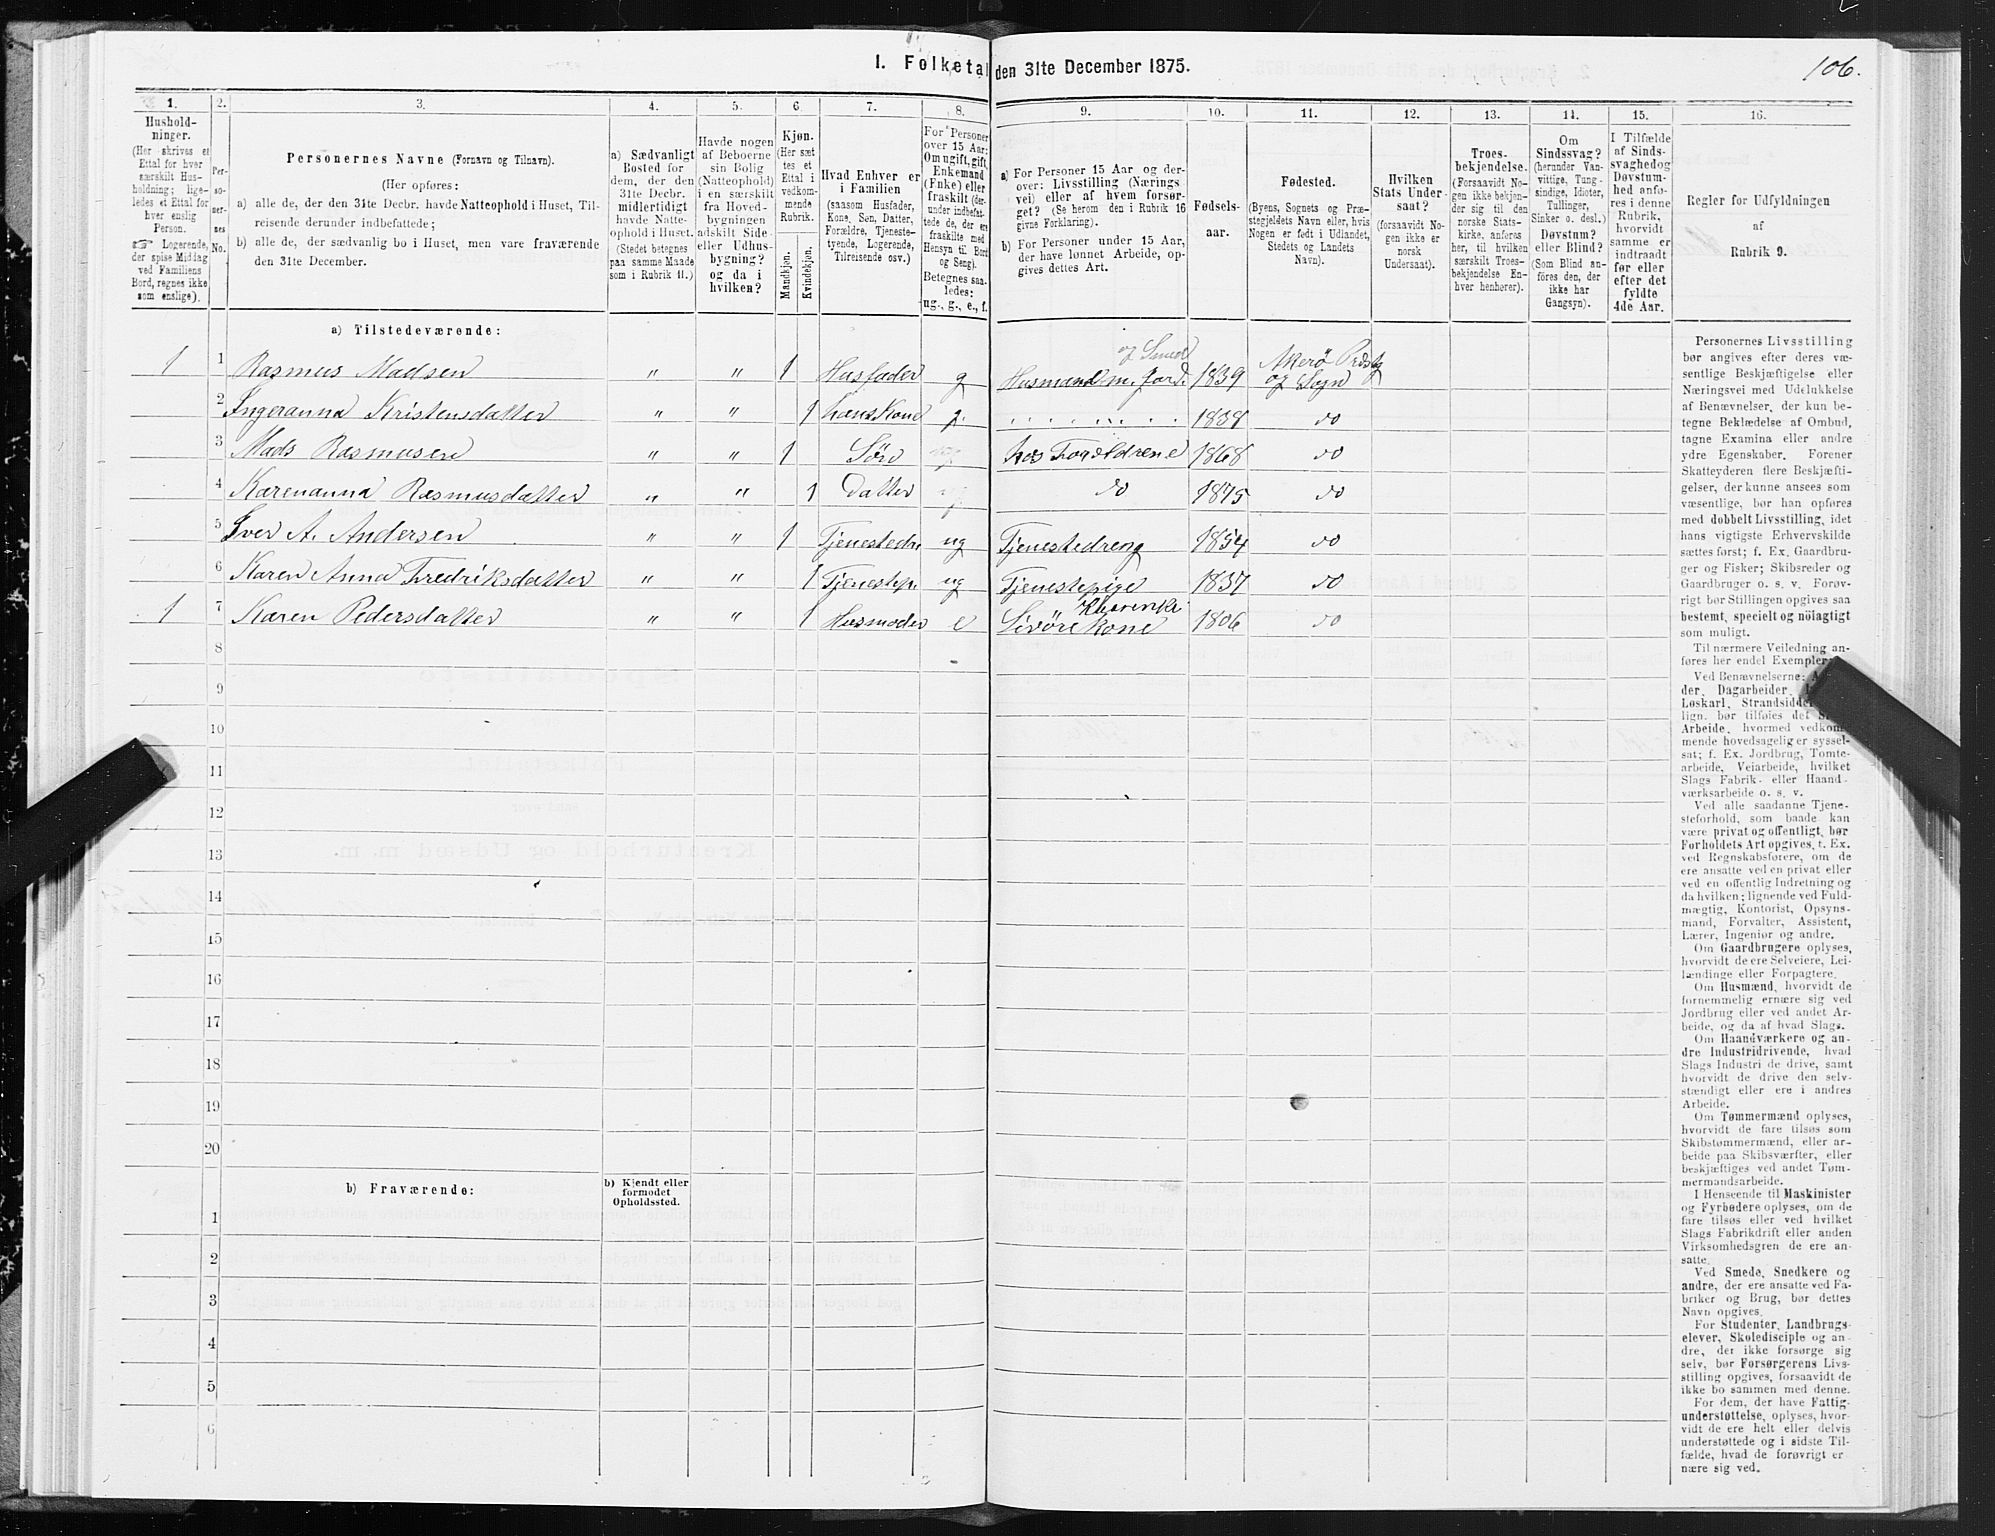 1. Folketal den 31te December 1875.
106.
1. 2. 3. 4. 5. 6. 7. 8. 9. 10. 11. 12. 13. 14. 15. 16.
Hushold-
ninger.
(Her skrives et
Ettal for hver
særskilt Hus-
holdning; lige-
ledes et Ettal for
hver enslig
Person.
☞ Logerende,
der spise Middag
ved Familiens
Bord, regnes ikke
som enslige).
Per-
so-
ner-
nes
No.
Personernes Navne (Fornavn og Tilnavn).
(Her opføres:
a) alle de, der den 31te Decbr. havde Natteophold i Huset, Til-
reisende derunder indbefattede;
b) alle de, der sædvanlig bo i Huset, men vare fraværende
den 31te December.
a) Sædvanligt
Bosted for
dem, der den
31te Decbr.
midlertidigt
havde Natte-
ophold i Huset.
(Stedet betegnes
paa samme Maade
som i Rubrik 11.)
Havde nogen
af Beboerne
sin Bolig
(Natteophold)
i en særskilt
fra Hoved-
bygningen
adskilt Side-
eller Udhus-
bygning?
og da i
hvilken?
Kjøn.
(Her sæt-
tes et
Ettal i
vedkom-
mende
Rubrik.
Mandkjøn.
Kvindekjøn.
Hvad Enhver er
i Familien
(saasom Husfader,
Kone, Søn, Datter,
Forældre, Tjeneste-
tyende, Logerende,
Tilreisende osv.)
For Personer
over 15 Aar:
Om ugift, gift,
Enkemand
(Enke) eller
fraskilt (der-
under indbefat-
tede de, der ere
fraskilte med
Hensyn til Bord
og Seng).
Betegnes saa-
ledes:
ug., g., e., f.
a) For Personer 15 Aar og der-
over: Livsstilling (Nærings-
vei) eller af hvem forsør-
get? (Se herom den i Rubrik 16
givne Forklaring).
b) For Personer under 15 Aar,
der have lønnet Arbeide, op-
gives dettes Art.
Fødsels-
aar.
Fødested.
(Byens, Sognets og Præ-
stegjeldets Navn eller, hvis
Nogen er født i Udlandet,
Stedets og Landets
Navn).
Hvilken
Stats Under-
saat?
(forsaavidt No-
gen ikke er
norsk
Undersaat).
Troes-
bekjendelse.
(Forsaavidt No-
gen ikke bekjen-
der sig til den
norske Stats-
kirke, anføres
her, til hvilken
særskilt Troes-
bekjendelse En-
hver henhører).
Om
Sindssvag?
(herunder Van-
vittige, Tung-
sindige, Idioter,
Tullinger,
Sinker o. desl.)
Døvstum?
eller Blind?
(Som Blind an-
føres den, der
ikke har
Gangsyn).
I Tilfælde
af Sinds-
svaghed og
Døvstum-
hed anfø-
res i denne
Rubrik,
hvorvidt
samme er
indtraadt
før eller
efter det
fyldte
4de Aar.
Regler for Udfyldningen
af
Rubrik 9.
a) Tilstedeværende:
1 1 Rasmus Madsen " " 1 Husfader g Husmand m. Jord. og Smed 1839 Akerö Prestg og Sogn
2 Ingeranna Kristensdatter " " 1 hans Kone g. 1838 do
3 Mads Rasmusen " " 1 Sön hos Forældrene 1868 do
4 Karenanna Rasmusdatter " " 1 Datter do 1875 do
5 Iver A. Andersen " " 1 Tjenestedr. ug Tjenestedreng 1854 do
6 Karen Anna Fredriksdatter " " 1 Tjenestep. ug Tjenestepige 1837 do
1 7 Karen Pedersdatter " " 1 Husmoder e 1806 do
8
9
10
11
12
13
14
15
16
17
18
19
20
b) Fraværende:
b) Kjendt eller
formodet
Opholdssted.
1
2
3
4
5
6
Personernes Livsstilling
bør angives efter deres væ-
sentlige Beskjæftigelse eller
Næringsvei med Udelukkelse
af Benævnelser, der kun be-
tegne Beklædelse af Ombud,
tagne Examina eller andre
ydre Egenskaber. Forener
Skatteyderen flere Beskjæfti-
gelser, der kunne ansees som
væsentlige, bør han opføres
med dobbelt Livsstilling, idet
hans vigtigste Erhvervskilde
sættes først; f. Ex. Gaardbru-
ger og Fisker; Skibsreder og
Gaardbruger o. s. v. Forøv-
rigt bør Stillingen opgives saa
bestemt, specielt og nøiagtigt
som muligt.
Til nærmere Veiledning an-
føres her endel Exempler:
Ved Benævnelserne:
der, Dagarbeider,
Løskarl, Strandsidder
lign. bør tilføies det
Arbeide, hvormed vedkom-
mende hovedsagelig er syssel-
sat; f. Ex. Jordbrug, Tomte-
arbeide, Veiarbeide, hvilket
Slags Fabrik- eller Haand-
værksarbeide o. s. v.
Ved alle saadanne Tjene-
steforhold, som baade kan
være privat og offentligt, bør
Forholdets Art opgives, f. Ex.
ved Regnskabsførere, om de
ere ansatte ved en privat eller
ved en offentlig Indretning og
da hvilken; lignende ved Fuld-
mægtig, Kontorist, Opsyns-
mand, Forvalter, Assistent,
Lærer, Ingeniør og andre.
Om Gaardbrugere oplyses,
hvorvidt de ere Selveiere, Lei-
lændinge eller Forpagtere.
Om Husmænd, hvorvidt de
fornemmelig ernære sig ved
Jordbrug eller ved andet Ar-
beide, og da af hvad Slags.
Om Haandværkere og an-
dre Industridrivende, hvad
Slags Industri de drive, samt
hvorvidt de drive den selv-
stændigt eller ere i andres
Arbeide.
Om Tømmermænd oplyses,
hvorvidt de fare tilsøs som
Skibstømmermænd, eller ar-
beide paa Skibsværfter, eller
beskjæftiges ved andet Tøm-
mermandsarbeide.
I Henseende til Maskinister
og Fyrbødere oplyses, om de
fare tilsøs eller ved hvilket
Slags Fabrikdrift eller anden
Virksomhedsgren de ere an-
satte.
Ved Smede, Snedkere og
andre, der ere ansatte ved Fa-
briker og Brug, bør dettes
Navn opgives.
For Studenter, Landbrugs-
elever, Skoledisciple og an-
dre, der ikke forsørge sig
selv, bør Forsørgerens Livs-
stilling opgives, forsaavidt de
ikke bo sammen med denne.
For dem, der have Fattig-
understøttelse, oplyses, hvor-
vidt de ere helt eller delvis
understøttede og i sidste Til-
fælde, hvad de forøvrigt er-
nære sig ved.